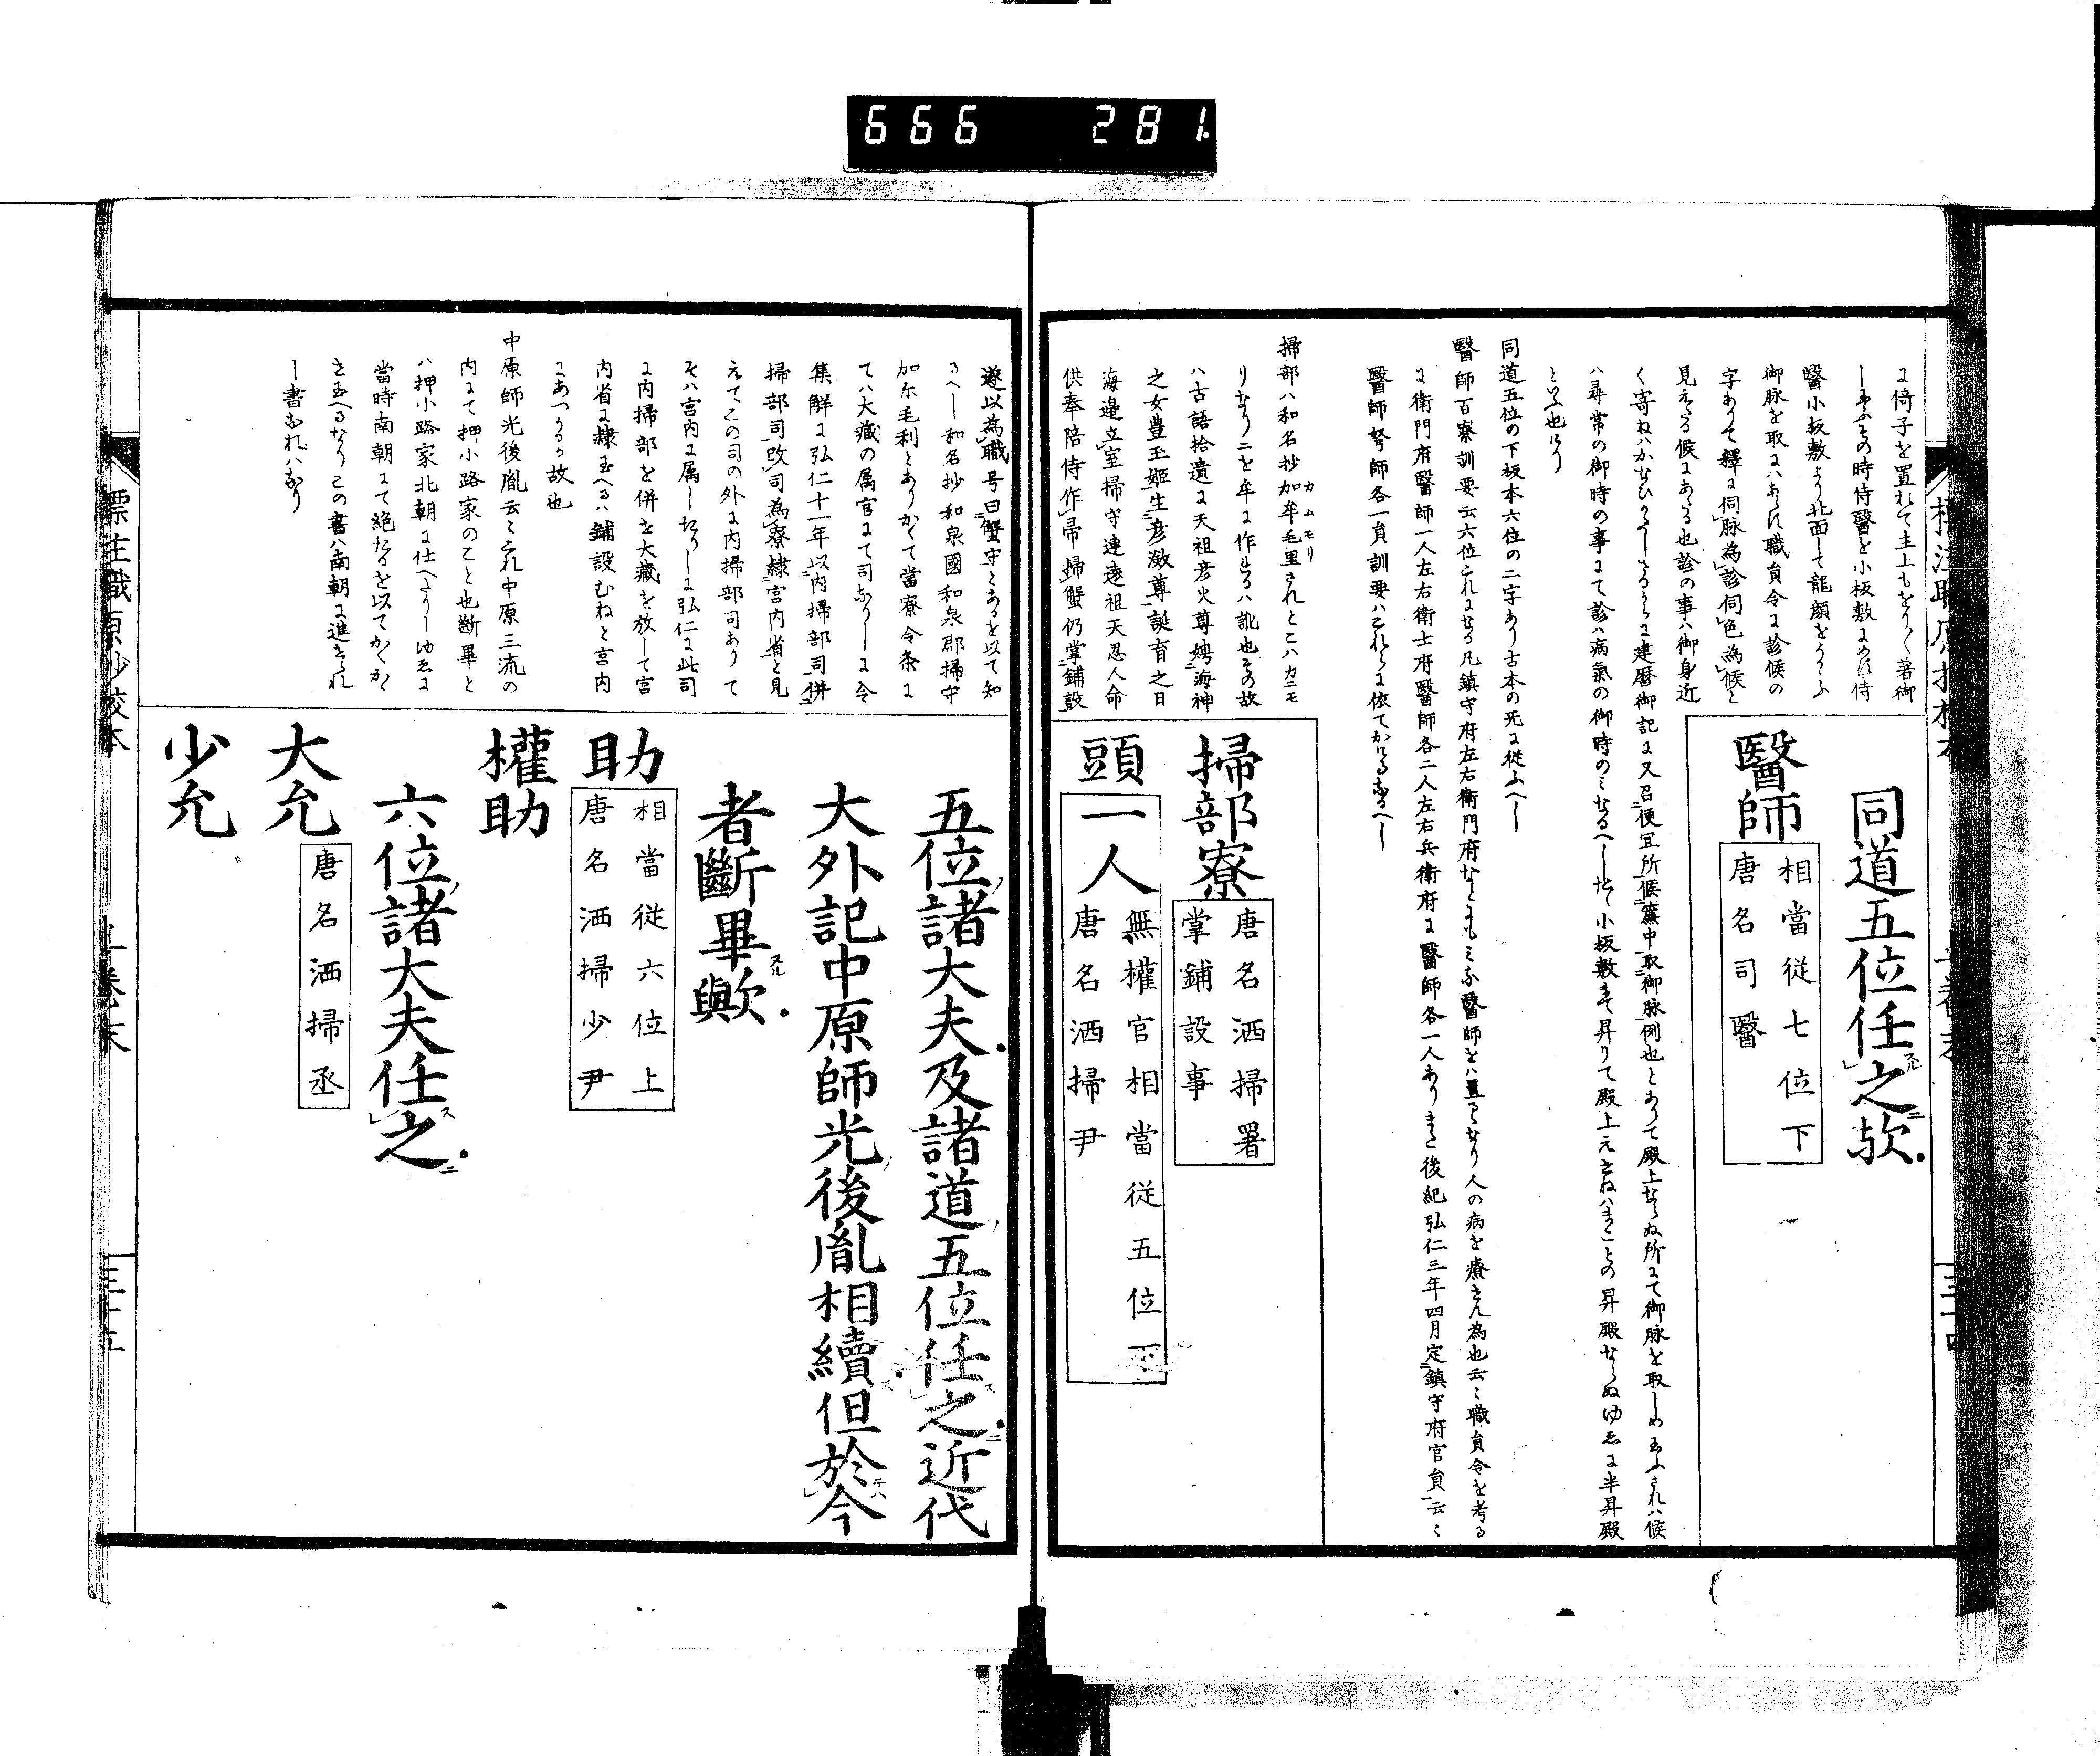 666 281
同道五位任之欤
醫師
相當従七位下
唐名司醫
に倚子を置れて主上もをり〱著御
醫小板敷より北面して龍顔をうらふ
御脉を取にハあらす職負令に診候の
字ありて釋に伺脉為診伺色為候と
見えたる候にあたる也診の事ハ御身近
ハ尋常の御時の事にて診ハ病氣の御時のミなるへし
といふ也けり
同道五位の下板本六位の二字あり古本の旡に従ふへし
醫師百寮訓要云六位これになる凡鎮守府左右衛門府なとにもミな醫師をハ置るなり人の病を療せん為也云〻職負令を考る
に衛門府醫師一人左右衛士府醫師各二人左右兵衛府に醫師各一人ありまた後紀弘仁三年四月定鎮守府官負云〻
醫師弩師各一負訓要ハこれらに依てかけるなるへし
掃部寮
唐名洒掃署
掌鋪設事
頭一人
無權官相當従五位下
唐名洒掃尹
掃部ハ和名抄加牟毛里されとこハカニモ
リなりニを牟に作れるハ訛也その故
ハ古語拾遺に天祖彦火尊娉海神
之女豊玉姫生彦瀲尊誕育之日
海邉立室掃守連遠祖天忍人命
供奉陪侍作帚掃蟹仍掌鋪設
遂以為職号曰蟹守とあるを以て知
るへし和名抄和泉國和泉郡掃守
加尓毛利とありかくて當寮令条に
てハ大藏の属官にて司なりしに令
集解に弘仁十一年以内掃部司併
掃部司改司為寮隷宮内省と見
えてこの司の外に内掃部司ありて
そハ宮内に属しけるに弘仁に此司
に内掃部を併せ大藏を放して宮
内省に隷玉へるハ鋪設むねと宮内
にあつかる故也
中原師光後胤云〻これ中原三流の
内にて押小路家のこと也斷畢と
ハ押小路家北朝に仕へたりしゆゑに
當時南朝にて絶たるを以てかくか
せ玉へるなりこの書ハ南朝に進せられ
し書なれハなり
五位諸大夫及諸道五位任之近代
大外記中原師光後胤相續但於今
者斷畢歟
助
相當従六位上
唐名洒掃少尹
權助
六位諸大夫任之
大允
唐名洒掃丞
少允
標注職原抄校本